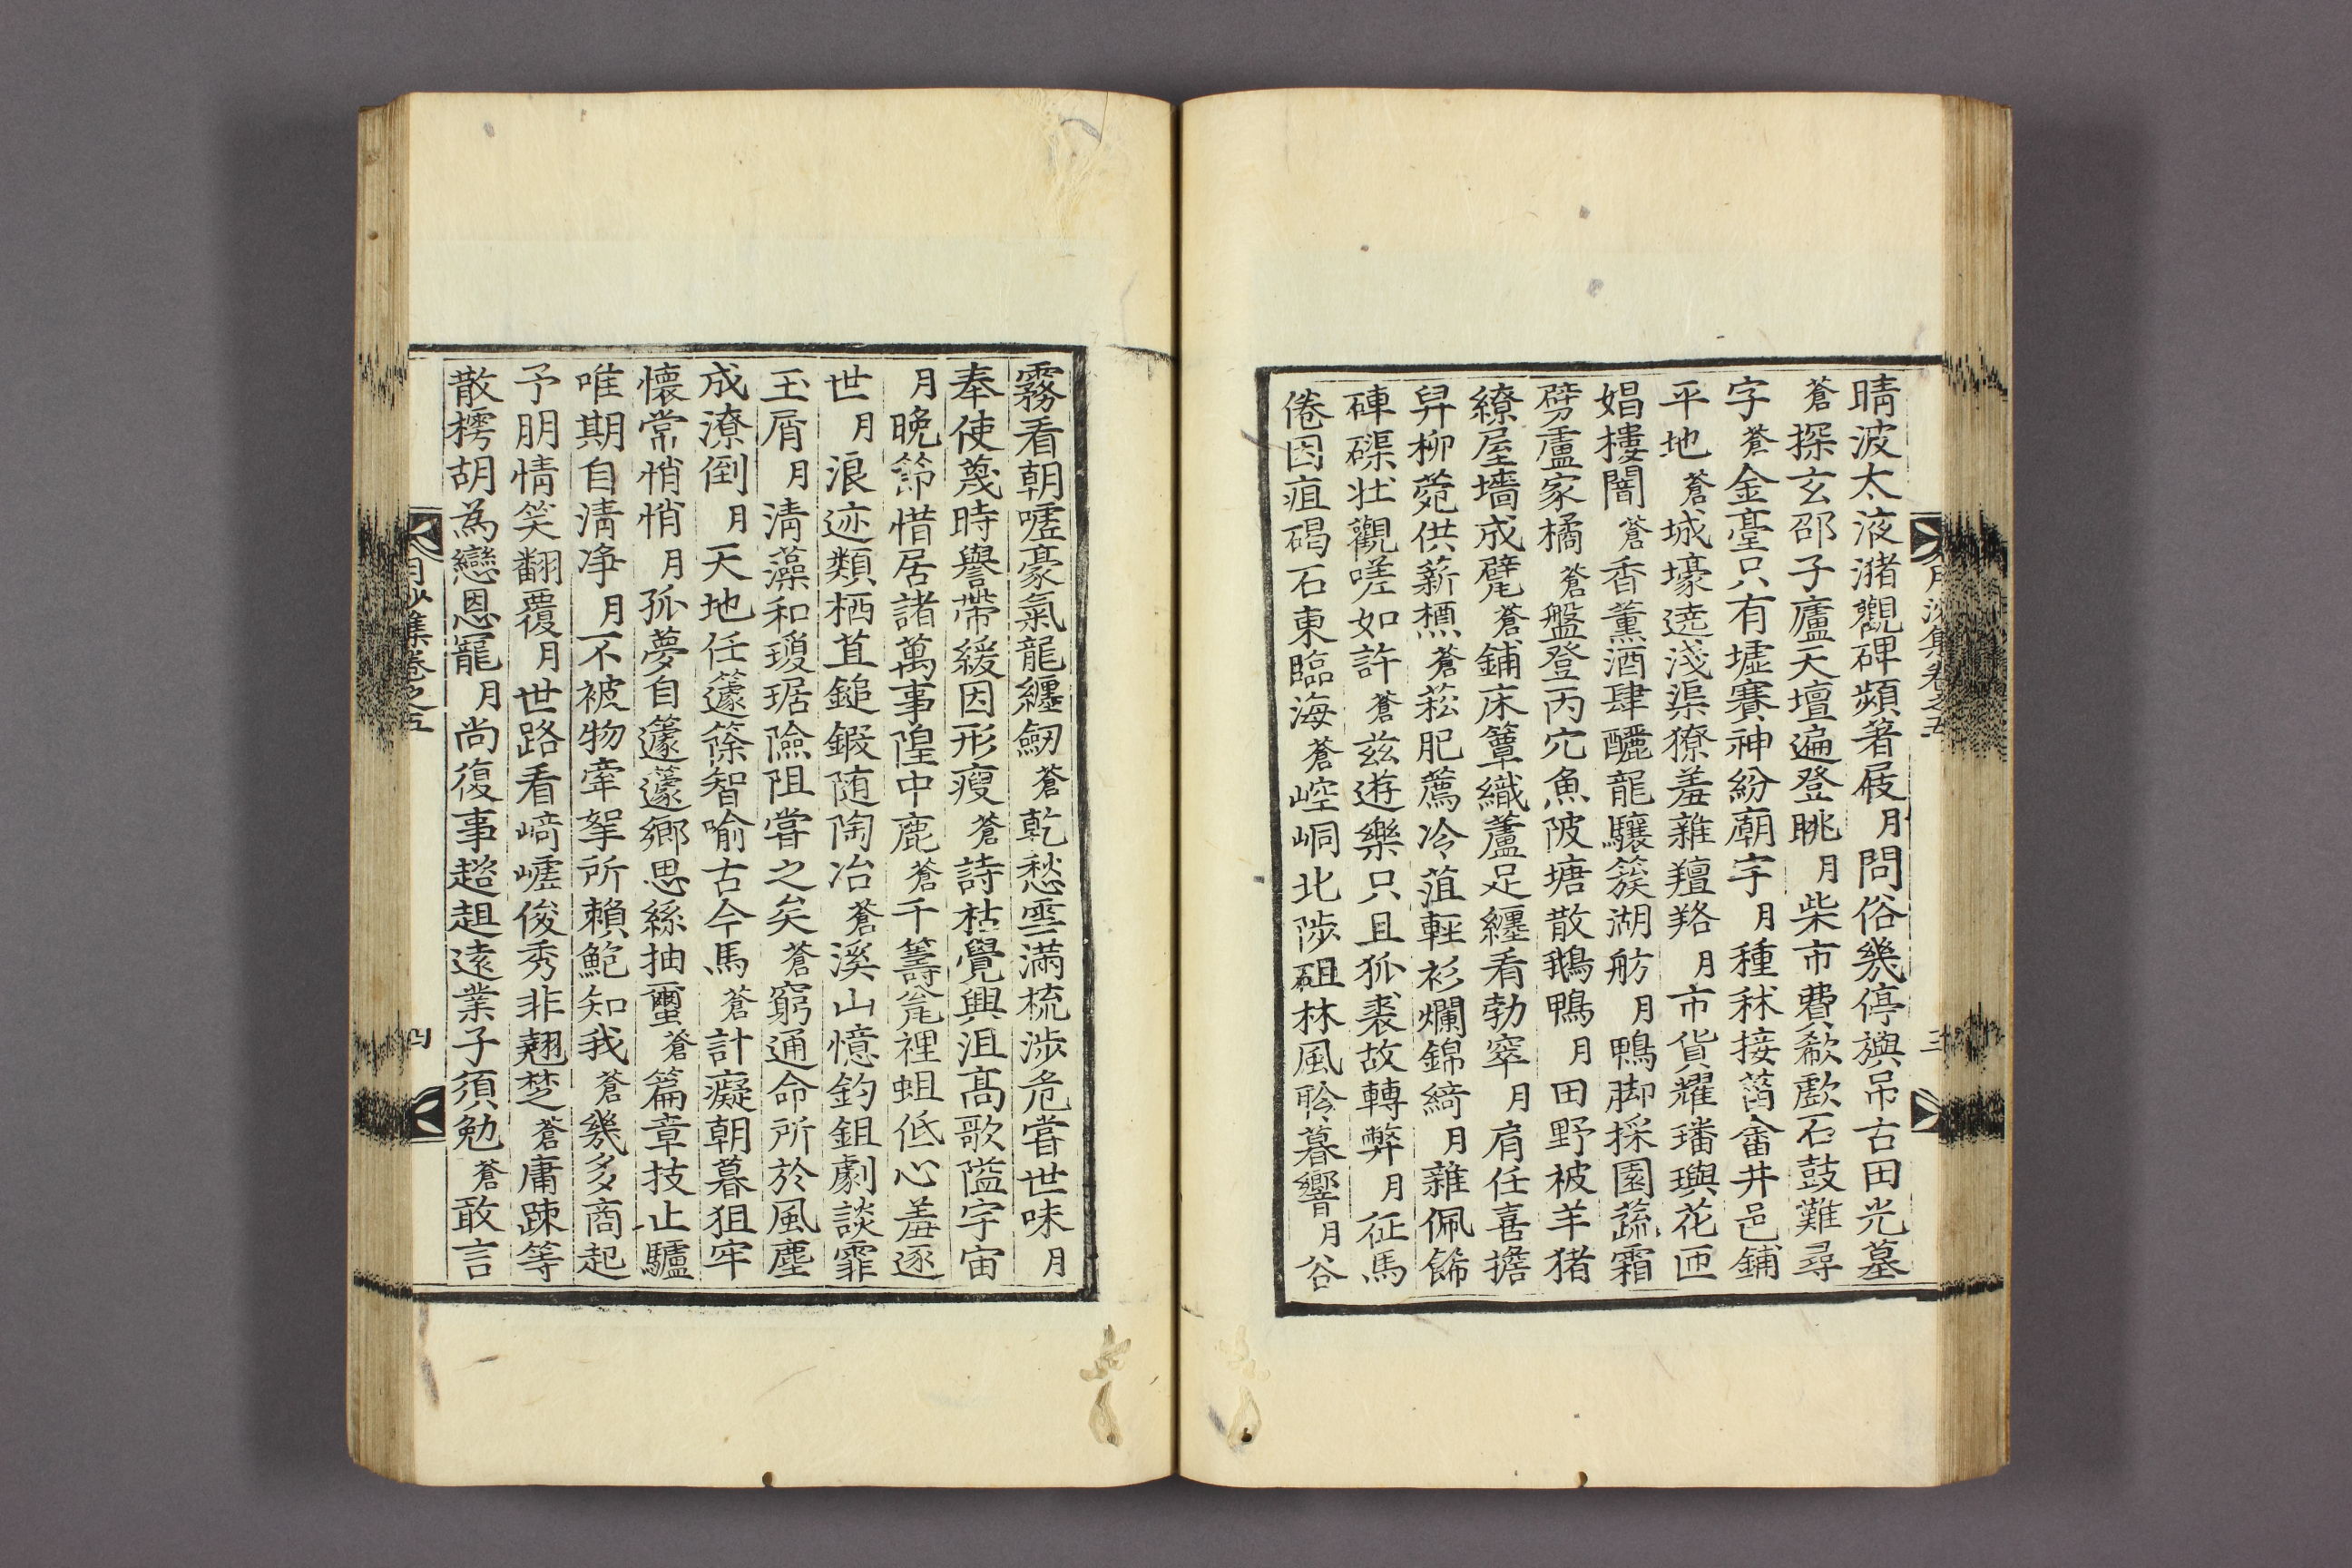 晴波太液潴觀碑頻著屐月問俗幾停旟吊古田光墓
蒼探玄邵子廬天壇遍登眺月柴市費欷歔石鼓難尋
字蒼金臺只有墟賽神紛廟宇月種秫接菑畬井邑鋪
平地蒼城壕遶淺渠獠羞雜羶臵月市貨耀璠璵花匝
娼樓闇蒼香薰酒肆釃龍驤簇湖舫月鴨脚採園蔬霜
劈盧家橘蒼盤登丙穴魚陂塘散鵝鴨月田野被羊猪
繚屋墻成甓蒼鋪床簟織蘆足纏看勃窣月肩任喜擔
舁柳菀供薪槱蒼菘肥薦冷菹輕衫爛錦綺月雜佩餙
硨磲壮觀嗟如許蒼茲遊樂只且狐裘故轉弊月征馬
倦因疽碣石東臨海蒼崆峒北陟砠林風聆暮響月谷
月沙集卷之五
三
霧看朝噓豪氣龍纏劒蒼乾愁雪滿梳涉危嘗世味月
奉使蔑時譽帶緩因形瘦蒼詩枯覺興沮高歌隘宇宙
月晚節惜居諸萬事隍中鹿蒼千籌甕裡蛆低心羞逐
世月浪迹類栖苴鎚鍜随陶冶蒼溪山憶釣鉏劇談霏
玉屑月清藻和瓊琚險阻嘗之矣蒼窮通命所於風塵
成潦倒月天地任籧篨智喻古今馬蒼計癡朝暮狙牢
懷常悄悄月孤夢自籧蘧鄉思絲抽蠒蒼篇章技止驢
唯期自淸净月不被物牽挐所賴鮑知我蒼幾多商起
予朋情笑翻覆月世路看﨑嶇俊秀非翹楚蒼庸踈等
散樗胡為戀恩寵月尚復事趦趄遠業子須勉蒼敢言
月沙集卷之五
四